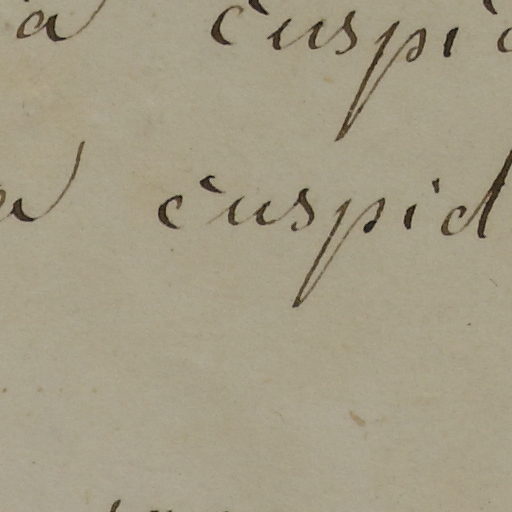 a cuspid
a cuspid